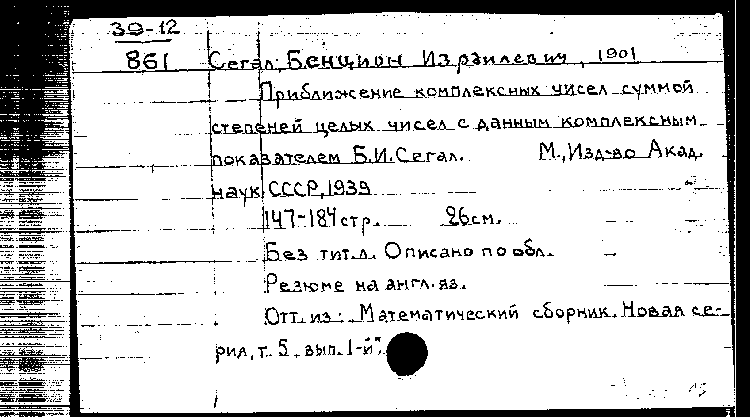 39-12
861 Сегал, Бенцион Израилевич, 1901
Приближение комплексных чисел суммой
степеней целых чисел с данным комплексным
показателем Б.И.Сегал. М.,Изд-во Акад.
наук СССР,1939
147-184 стр. 26см.
Без тит.л. Описано по обл.
Резюме на англ.яз.
Отт.из: Математический сборник. Новая се-
рия, т. 5, вып. 1-й".